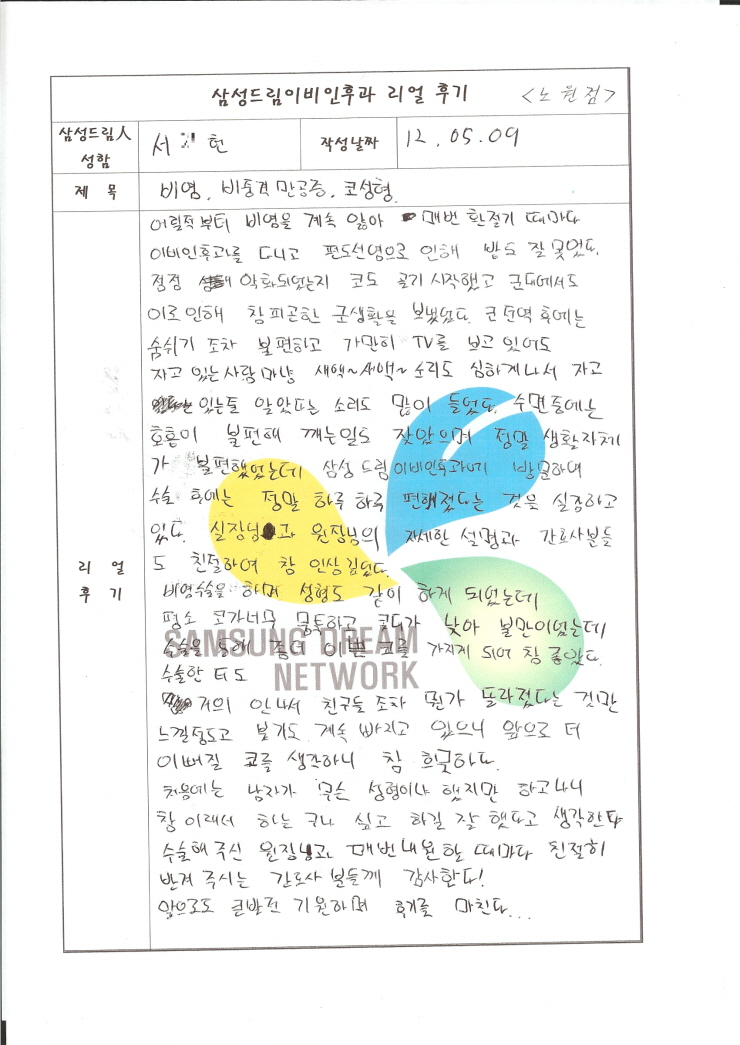 삼성드림이비인후과 리얼 후기 <노원점>
삼성드림人 성함
서 헌
작성날짜
12. 05. 09
제 목
비염, 비중격 만곡증, 코성형.
리 얼 후 기
어릴적부터 비염을 계속 앓아 매번 환절기 때마다
이비인후과를 다니고 편도선염으로 인해 밥도 잘 못었다.
점점 악화되었는지 코도 골기 시작했고 군대에서도
이로 인해 창피곤한 군생활을 보냈었다. 군전역 후에는
숨쉬기 조차 불편하고 가만히 TV를 보고 있어도
자고 있는사람 마냥 새액~새액~ 소리도 심하게 나서 자고
있는줄 알았다는 소리도 많이 들었다. 수면중에는
호흡이 불편해 깨는일도 잦았으며 정말 생활자체
가 불편했었는데 삼성 드림이비인후과에 방문하여
수술 후에는 정말 하루 하루 편해졌다는 것을 실감하고
있다. 실장님과 원장님의 자세한 설명과 간호사분들
도 친절하여 참 인상깊었다.
비염수술을 하며 성형도 같이 하게 되었는데
평소 코가너무 뭉툭하고 콧대가 낮아 불만이었는데
수술을 통해 좀더 이쁜 코를 가지게 되어 참 좋았다.
수술한 티도
거의 안나서 친구들 조차 뭔가 달라졌다는 것만
느낄정도고 붓기도 계속 빠지고 있으니 앞으로 더
이뻐질 코를 생각하니 참 흐뭇하다.
처음에는 남자가 무슨 성형이냐 했지만 하고나니
참 이래서 하는 구나 싶고 하길 잘 했다고 생각한다
수술해 주신 원장님과 매번 내원할 때마다 친절히
반겨 주시는 간호사 분들께 감사한다!
앞으로도 큰발전 기원하며 후기를 마친다...
SAMSUNG DREAM
NETWORK